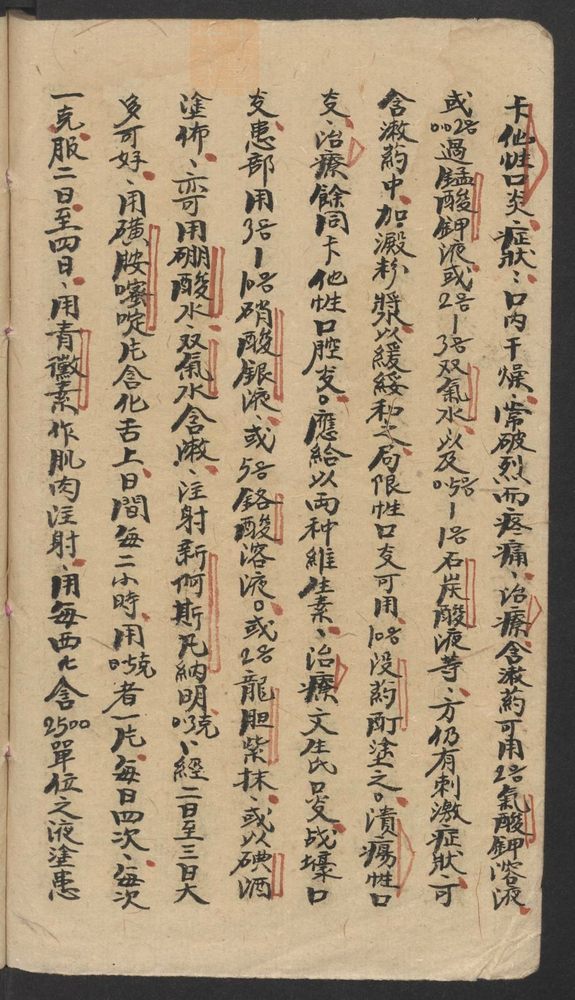 卡他性口炎、症狀：口内干燥、常破烈而疼痛、治療、含漱葯可用2%氯酸鉀溶液
或0.02%過錳酸鉀液或2%—3%双氣水、以及0.5%—1%石炭酸液等、方仍有刺激症狀、可
含漱葯中、加澱粉漿以緩緩和之、局限性口炎可用10%没葯酊塗之。潰瘍性口
炎、治療餘同卡他性口腔炎。應給以两种維生素、治療文生氏口炎战壕口
炎、患部用3%—10%硝酸銀液、或5%鉻酸溶液。或2%龍胆紫抹、或以碘酒
塗佈、亦可用硼酸水、双氣水含漱、注射新阿斯凡納明0.3克、經二日至三日大
多可好、用磺胺噻啶片含化舌上、日間每二小時、用0.5克者一片、每日四次、每次
一克、服二日至四日、用青黴素作肌肉注射、用每西西含2500單位之液塗患